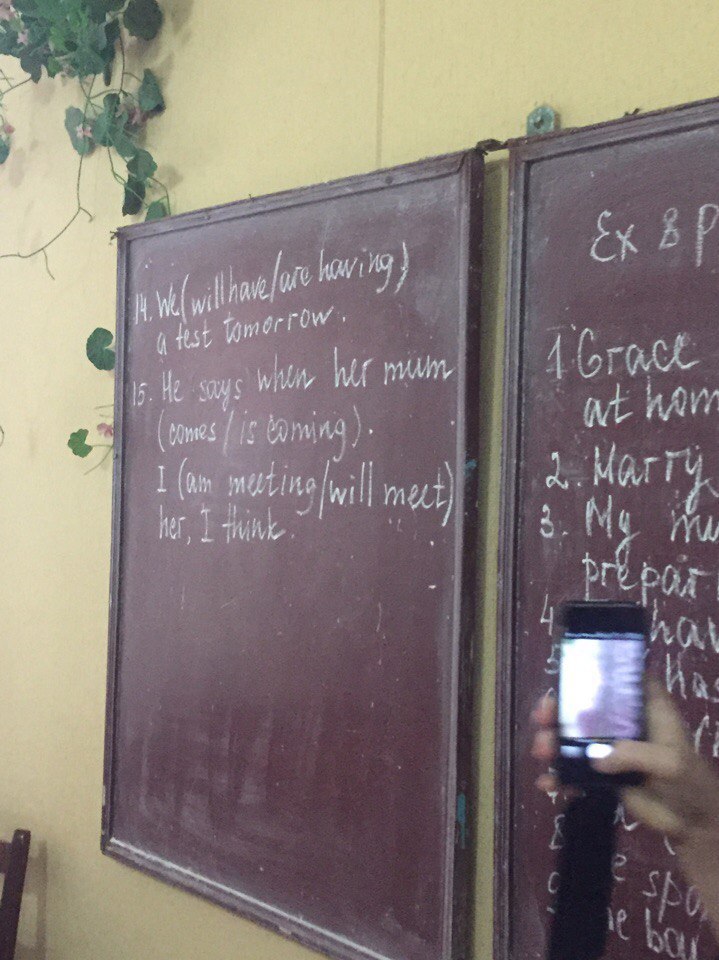 14. We (will have/are having)
a test tomorrow.
15. He says when her mum
(comes / is coming).
I (am meeting/will meet)
her, I think.
Ex 8 P
1 Grace
at hom
2. Marry
3. My mu
prepar
4 hav
5 Has
8
spo
he boy